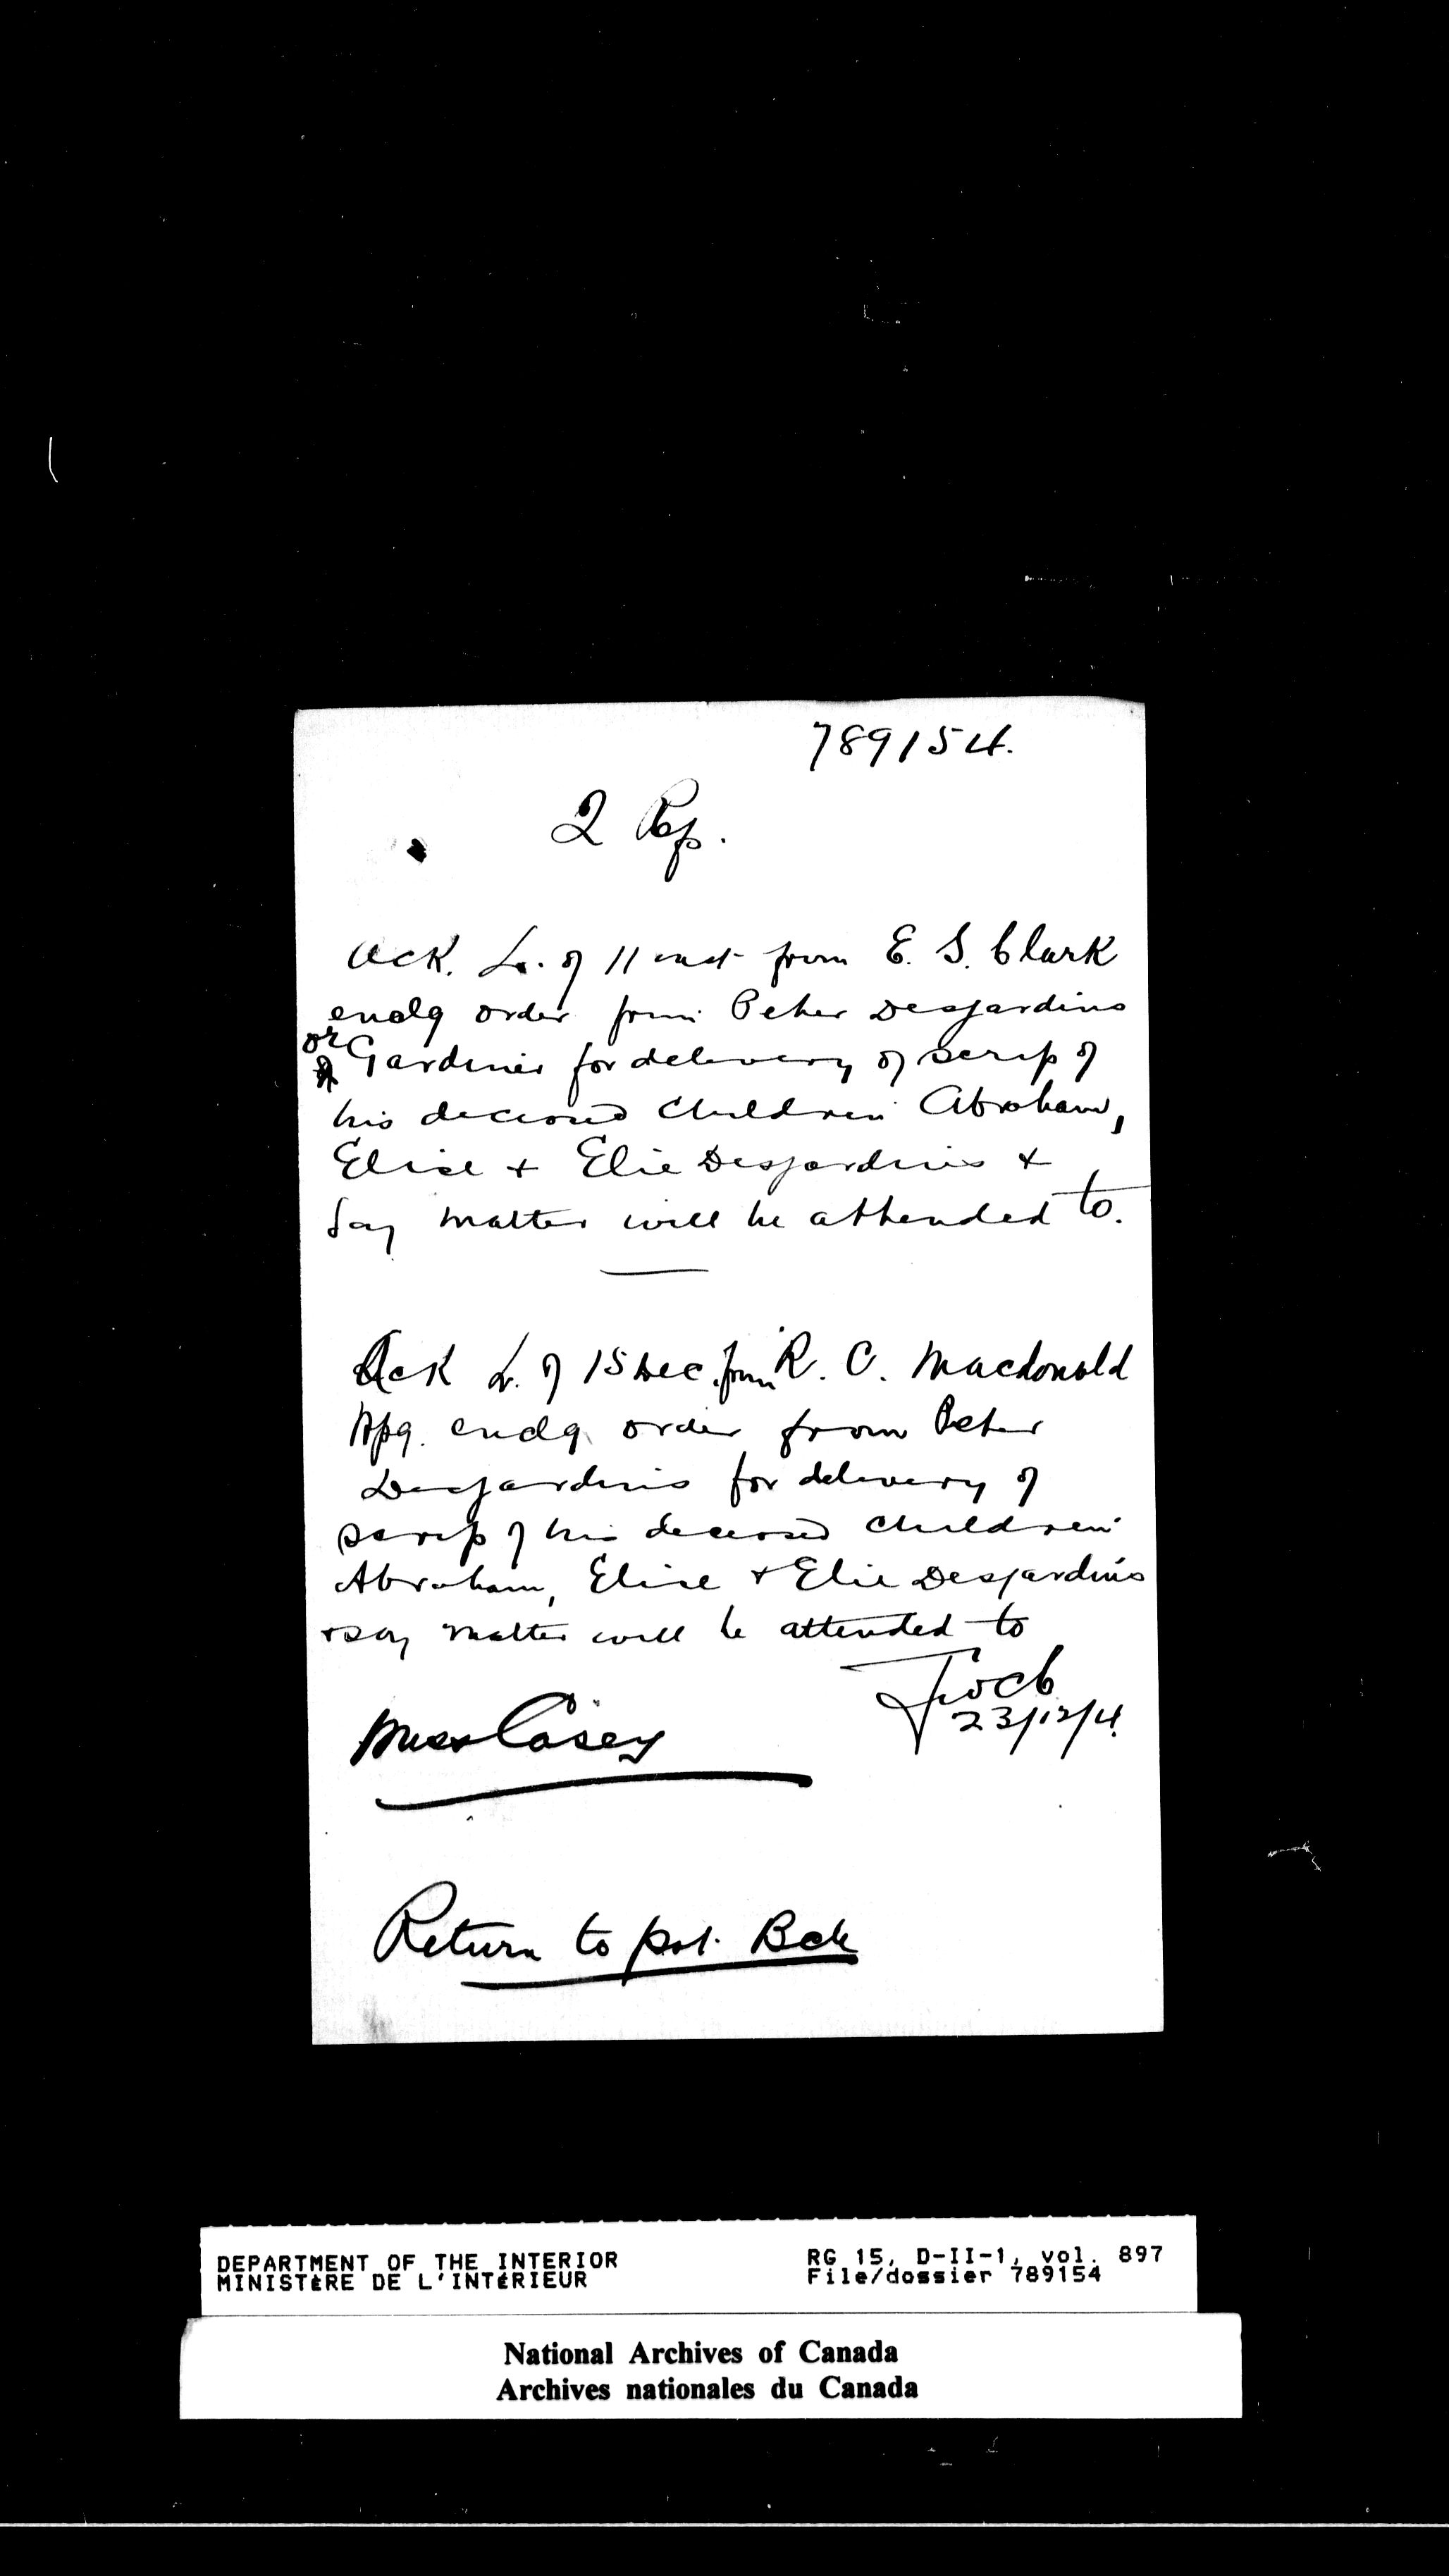 789154.
2 Rep.
Ack. Lr. of 11 inst from E. S. Clark
endg order from Peter Desjardins
or Gardiner for delivery of scrip of
his deceased children Abraham,
Elise + Elie Desjardins +
say matter will be attended to.
Ack Lr. of 15 Dec. from R. C. Macdonald
Wpg. endg order from Peter
Desjardins for delivery of
scrip of his deceased children
Abraham, Elise + Elie Desjardins
+ say matter will be attended to
23/12/4
Miss Casey
Return to
DEPARTMENT OF THE INTERIOR
MINISTÈRE DE L'INTÉRIEUR
RG 15, D-II-1, vol. 897
File/dossier 789154
National Archives of Canada
Archives nationales du Canada